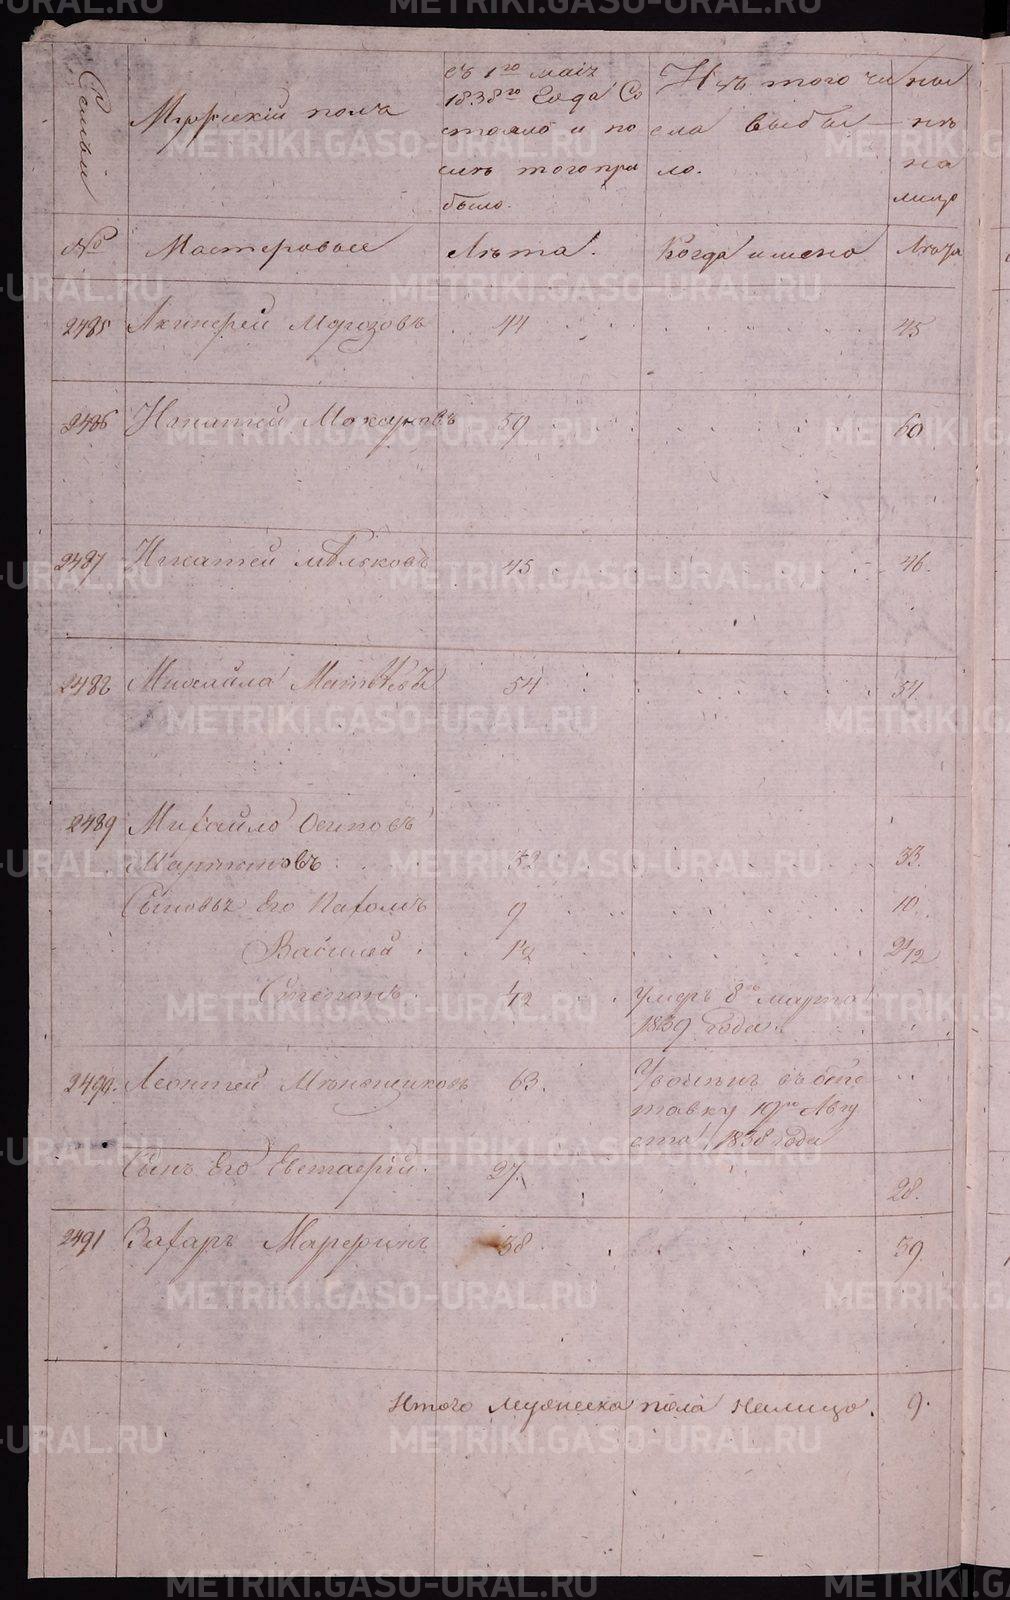 Семьи
Мужескій полъ
съ 1го маія
1838го Года Со
стояло и по
слѣ того при
было.
Изъ того чи
сла выбы
ло.
ны
нѣ
на
лицо
№
Мастеровые
Лѣта.
Когда имено
Лѣта
2485 Акинфей Морозовъ 44 45
2486 Игнатей Мокауновъ 59 60
2487 Игнатей 45 46
2488 Михайла Матвѣевъ 54 54
2489 Михайло Осиповъ
Мартыновъ 32 33
Сыновья Его Пахомъ 9 10
Василей 1½ 2½
Степанъ ½ умеръ 8го марта
1839 года
2490 Леонтей Мѣньшиковъ 63. Уволенъ въ отс
тавку 19го Авгу
ста 1838 года
Сынъ Его Евстаѳій. 27. 28.
2491 Захаръ Марфинъ 58 59
Итого Мужеска пола налицо. 9.
METRIKI.GASO-URAL.RU